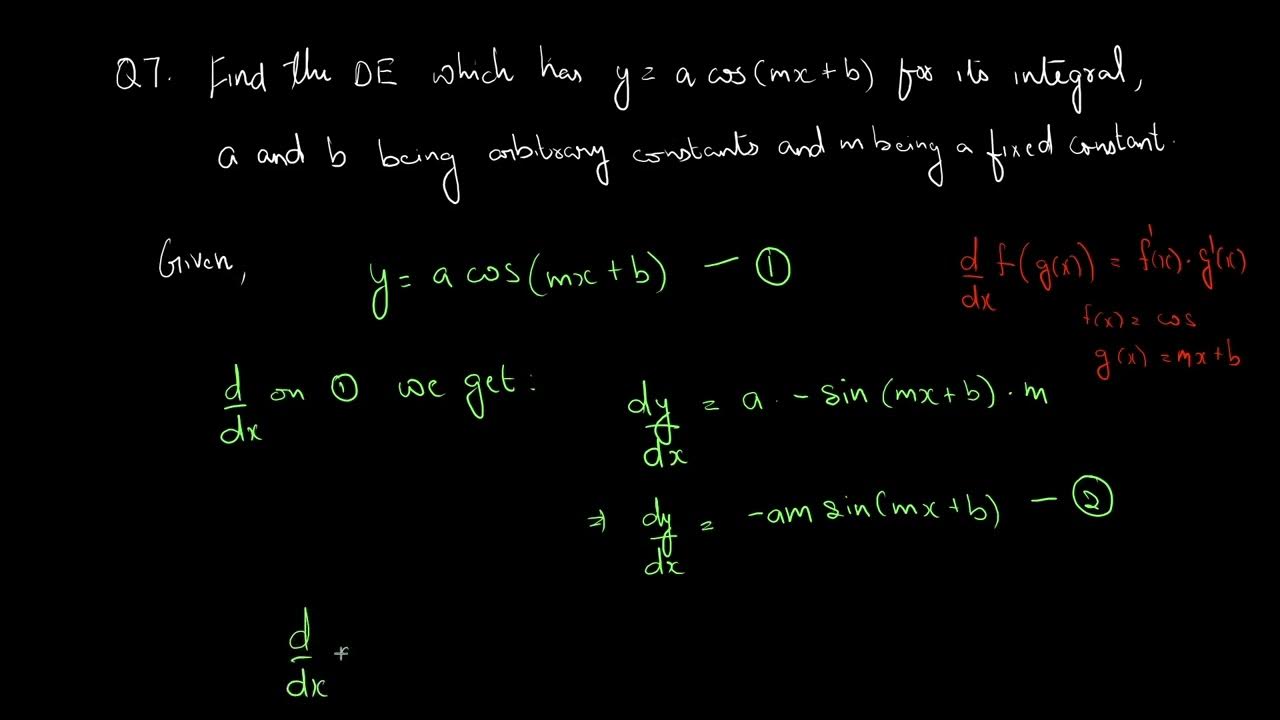 Q7. Find the DE which has y = a cos(mx + b) for its integral,
a and b being arbitrary constants and m being a fixed constant.
Given,
y = a cos(mx + b) — ①
d/dx f(g(x)) = f'(x) · g'(x)
f(x) = cos
g(x) = mx + b
d/dx on ① we get :
dy/dx = a · - sin (mx + b) · m
⇒ dy/dx = -am sin(mx + b) — ②
d/dx